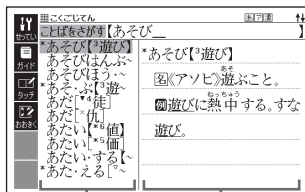 こくごじてん あアア漢
ことばをさがす【あそび＿ 】
せってい
ガイド
タッチ
おおきく
*あそび【³遊び】
あそびはんぶ~
あそびほう・~
*あそ・ぶ【³遊~
あだ【▼⁴徒】
あだ【×仇】
あたい【*⁶値】
あたい【*⁵価】
あたい・する【~
*あた・える【▽~
*あそび【³遊び】
名《アソビ》遊ぶこと。
あそ
例遊びに熱中する。すな
ねっちゅう
遊び。